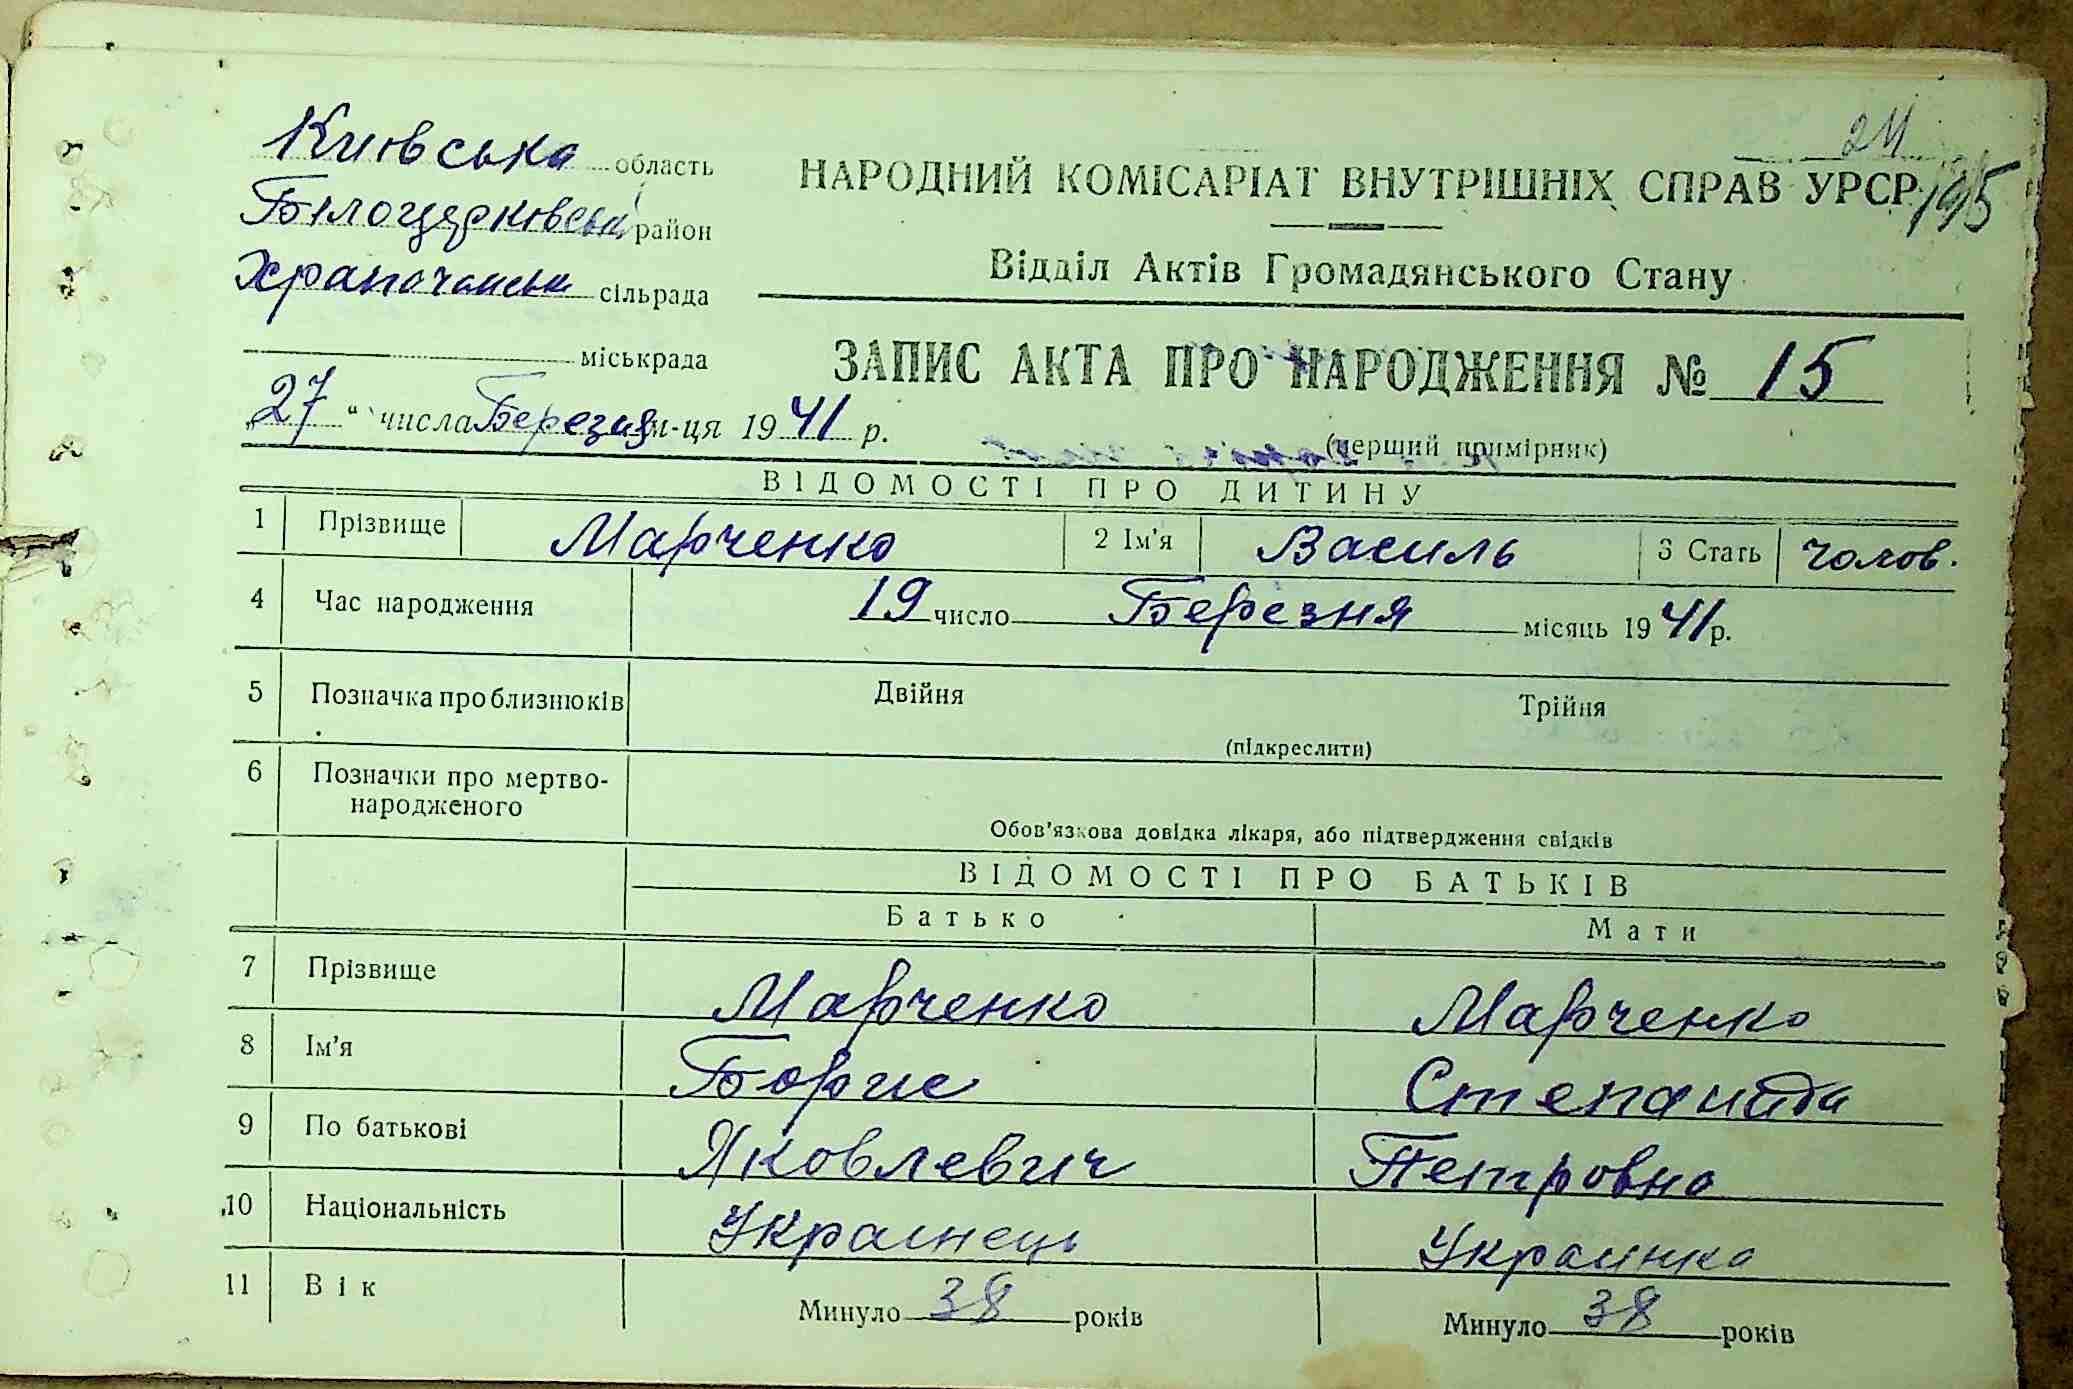 Київська область
Білоцерківськ район
Храпачанська сільрада
міськрада
"27" числа Березня м-ця 1941 р.
24
195
НАРОДНИЙ КОМІСАРІАТ ВНУТРІШНІХ СПРАВ УРСР
Відділ Актів Громадянського Стану
ЗАПИС АКТА ПРО НАРОДЖЕННЯ № 15
(перший примірник)
ВІДОМОСТІ ПРО ДИТИНУ
1 Прізвище Марченко 2 Ім'я Василь 3 Стать чолов.
4 Час народження 19 число Березня місяць 1941 р.
5 Позначка про близнюків Двійня Трійня
(підкреслити)
6 Позначки про мертво-
народженого
Обов'язкова довідка лікаря, або підтвердження свідків
ВІДОМОСТІ ПРО БАТЬКІВ
Батько Мати
7 Прізвище Марченко Марченко
8 Ім'я Борис Степанида
9 По батькові Яковлевич Петровна
10 Національність Украинець Украинка
11 Вік Минуло 38 років Минуло 38 років